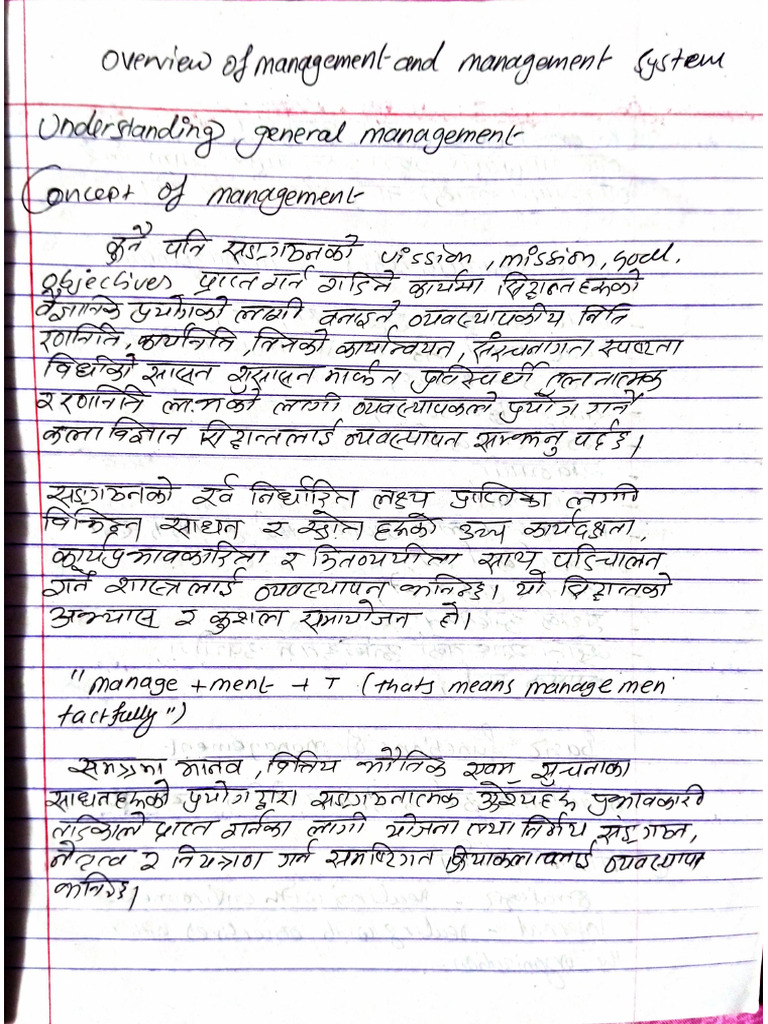 Overview of management and management system
Understanding general management
Concept of management
कुनै पनि सङ्गठनको vission, mission, goal,
objectives प्राप्त गर्न गरिने कार्यमा सिद्दान्तहरुको
वैज्ञानिक प्रयोगको लागी बनाइने व्यवस्थापकीय निति
रणनिति, कार्यनिति, तिनको कार्यान्वयन, संरचनागत स्पष्टता
विधीको सासन सुसासन मार्फत प्रतिस्पर्धी तुलनात्मक
र रणनिति लाभको लागी व्यवस्थापकले प्रयोग गर्ने
कला विज्ञान सिद्दान्तलाई व्यवस्थापन सम्झनु पर्दछ।
सङ्गठनको पूर्व निर्धारित लक्ष्य प्राप्तिका लागी
विभिन्न साधन र स्रोतहरुको उच्च कार्यदक्षता,
कार्यप्रभावकारिता र मितव्ययीता साथ परिचालन
गर्ने शास्त्रलाई व्यवस्थापन भनिन्छ। यो सिद्दान्तको
अभ्यास र कुशल समायोजन हो।
"manage + ment + T (thats means manage men
tactfully")
समग्रमा मानव, वित्तिय भौतिक एवम् सुचनाका
साधनहरुको प्रयोग द्वारा सङ्गठनात्मक उदेश्यहरु प्रभावकारी
तरिकाले प्राप्त गर्नका लागी योजना तथा निर्णय संङ्गठन,
नेतृत्व र नियन्त्रण गर्न समष्टिगत क्रियाकलापलाई व्यवस्थापन
भनिन्छ।